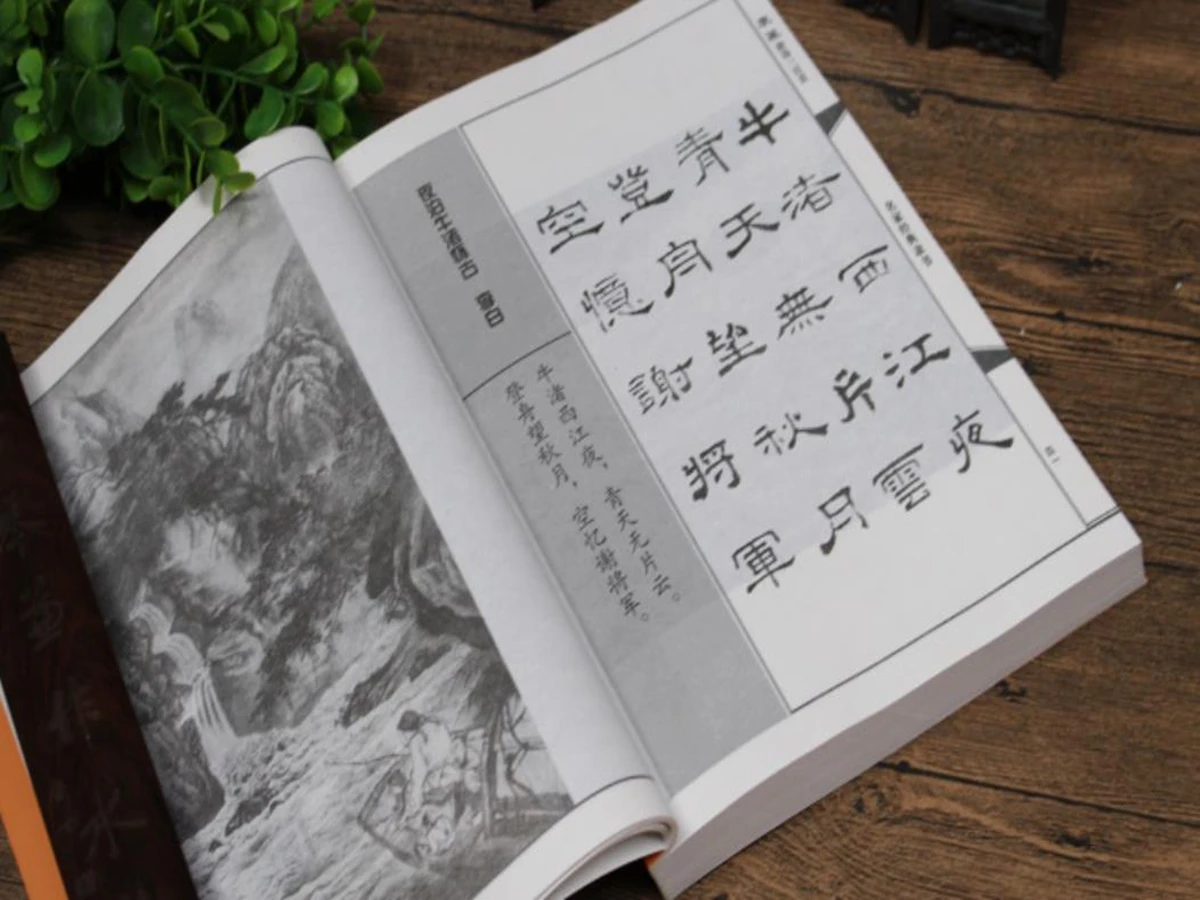 牛渚西江夜
青天無片雲
登舟望秋月
空憶謝將軍
牛渚西江夜，青天无片云。
登舟望秋月，空忆谢将军。
夜泊牛渚怀古 李白